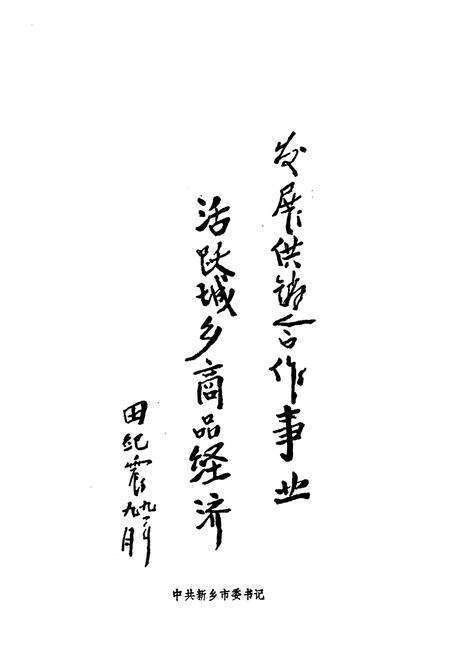 发展供销合作事业
活跃城乡商品经济
田纪云
九一年
九月
中共新乡市委书记